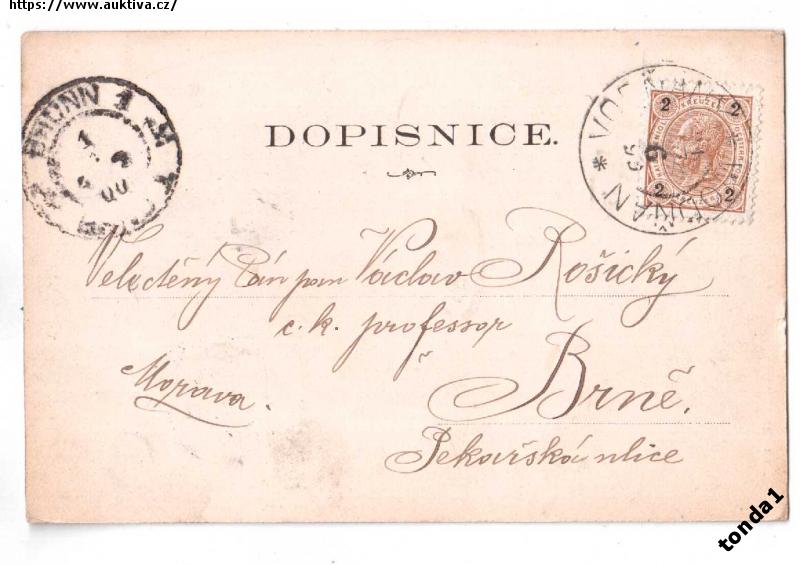 https://www.auktiva.cz/
BRÜNN 1
DOPISNICE.
2 KREUZER 2
2 2
Velectěný Pán pan Václav Rošický
c. k. professor
v Brně.
Morava.
Pekařská ulice
tonda1